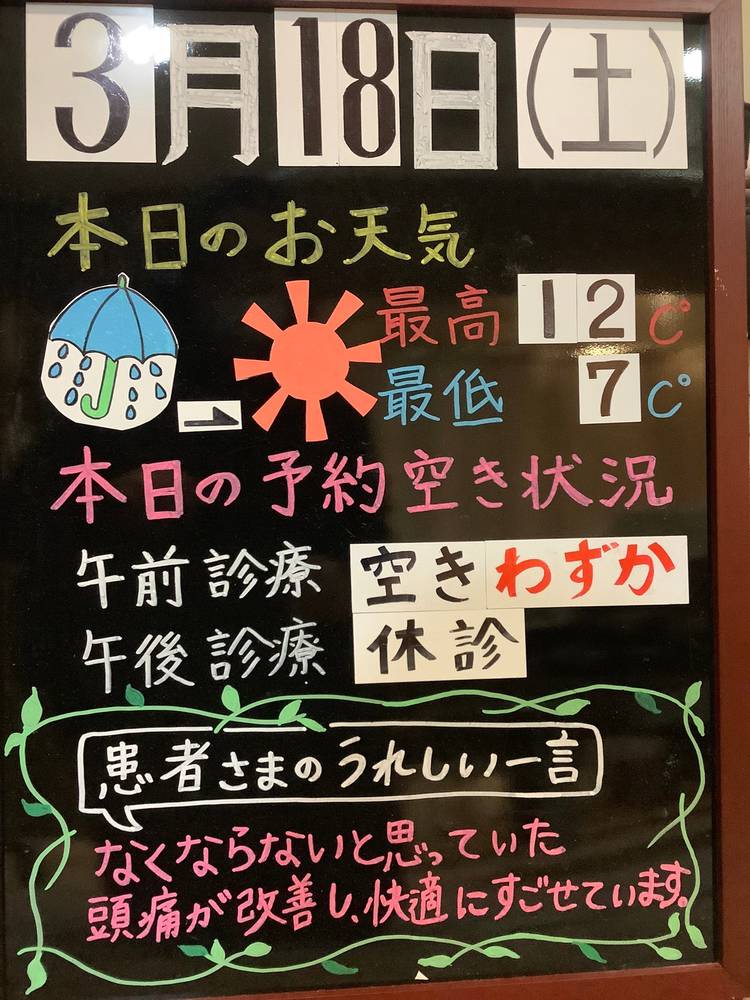 3月18日(土)
本日のお天気
最高 12℃
最低 7℃
本日の予約空き状況
午前診療 空きわずか
午後診療 休診
患者さまのうれしい一言
なくならないと思っていた
頭痛が改善し、快適にすごせています。